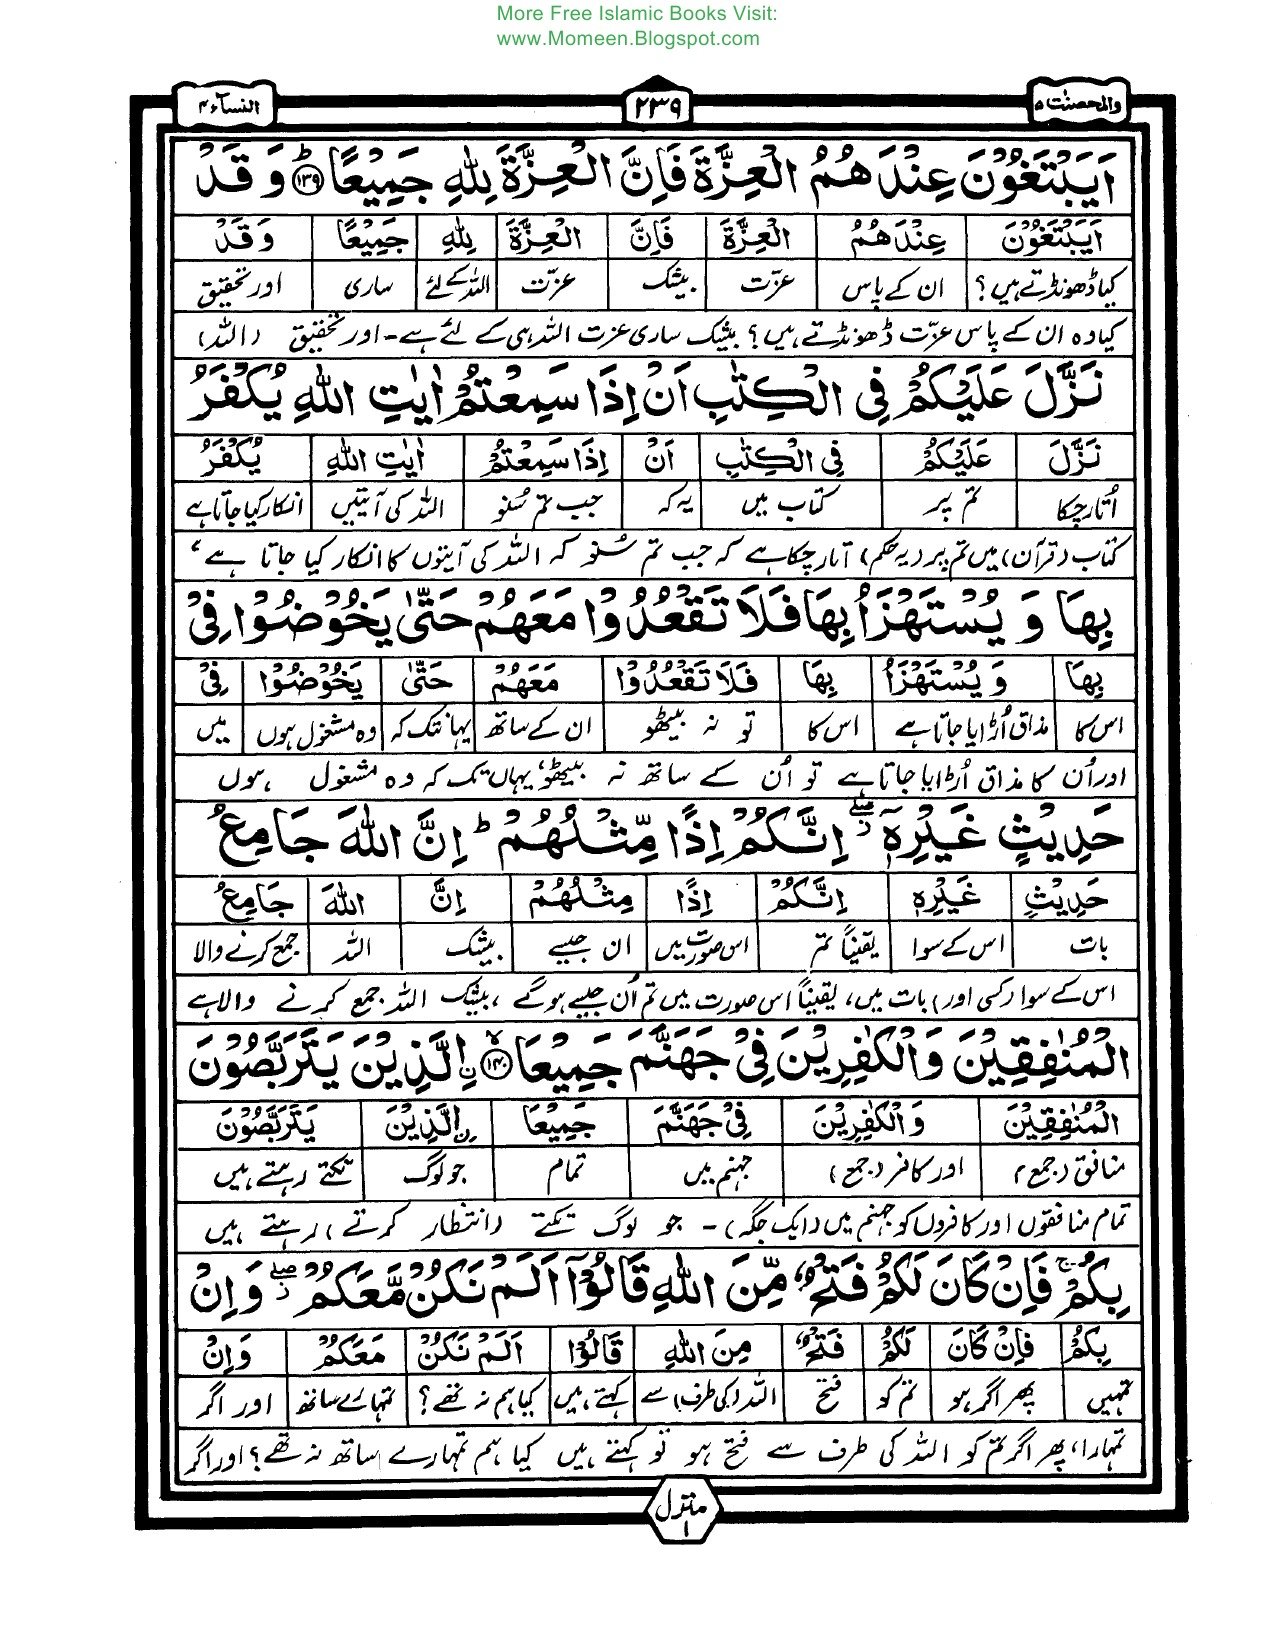 More Free Islamic Books Visit:
www.Momeen.Blogspot.com
والمحصنٰت ۵ ۲۳۹ النسآء ۴
اَيَبْتَغُوْنَ عِنْدَهُمُ الْعِزَّةَ فَاِنَّ الْعِزَّةَ لِلّٰهِ جَمِيْعًا ؕ ﴿۱۳۹﴾ وَ قَدْ
اَيَبْتَغُوْنَ عِنْدَهُمُ الْعِزَّةَ فَاِنَّ الْعِزَّةَ لِلّٰهِ جَمِيْعًا وَ قَدْ
کیا ڈھونڈتے ہیں؟ ان کے پاس عزّت بیشک عزّت اللہ کے لئے ساری اور تحقیق
کیا وہ ان کے پاس عزّت ڈھونڈتے ہیں؟ بیشک ساری عزت اللہ ہی کے لئے ہے۔ اور تحقیق (اللہ)
نَزَّلَ عَلَيْكُمْ فِي الْكِتٰبِ اَنْ اِذَا سَمِعْتُمْ اٰيٰتِ اللّٰهِ يُكْفَرُ
نَزَّلَ عَلَيْكُمْ فِي الْكِتٰبِ اَنْ اِذَا سَمِعْتُمْ اٰيٰتِ اللّٰهِ يُكْفَرُ
اُتار چکا تم پر کتاب میں یہ کہ جب تم سُنو اللہ کی آیتیں انکار کیا جاتا ہے
کتاب (قرآن) میں تم پر (یہ حکم) اُتار چکا ہے کہ جب تم سُنو کہ اللہ کی آیتوں کا انکار کیا جاتا ہے،
بِهَا وَ يُسْتَهْزَاُ بِهَا فَلَا تَقْعُدُوْا مَعَهُمْ حَتّٰى يَخُوْضُوْا فِيْ
بِهَا وَ يُسْتَهْزَاُ بِهَا فَلَا تَقْعُدُوْا مَعَهُمْ حَتّٰى يَخُوْضُوْا فِيْ
اس کا مذاق اُڑایا جاتا ہے اس کا تو نہ بیٹھو ان کے ساتھ یہانتک کہ وہ مشغول ہوں میں
اور اُن کا مذاق اُڑایا جاتا ہے تو اُن کے ساتھ نہ بیٹھو، یہاں تک کہ وہ مشغول ہوں
حَدِيْثٍ غَيْرِهٖٓ ۖ اِنَّكُمْ اِذًا مِّثْلُهُمْ ؕ اِنَّ اللّٰهَ جَامِعُ
حَدِيْثٍ غَيْرِهٖ اِنَّكُمْ اِذًا مِثْلُهُمْ اِنَّ اللّٰهَ جَامِعُ
بات اس کے سوا یقیناً تم اس صورت میں ان جیسے بیشک اللہ جمع کرنے والا
اس کے سوا (کسی اور) بات میں، یقیناً اس صورت میں تم اُن جیسے ہوگے، بیشک اللہ جمع کرنے والا ہے
الْمُنٰفِقِيْنَ وَالْكٰفِرِيْنَ فِيْ جَهَنَّمَ جَمِيْعًا ۙ ﴿۱۴۰﴾ اِۨلَّذِيْنَ يَتَرَبَّصُوْنَ
الْمُنٰفِقِيْنَ وَالْكٰفِرِيْنَ فِيْ جَهَنَّمَ جَمِيْعًا اِۨلَّذِيْنَ يَتَرَبَّصُوْنَ
منافق (جمع) اور کافر (جمع) جہنم میں تمام جو لوگ تکتے رہتے ہیں
تمام منافقوں اور کافروں کو جہنم میں (ایک جگہ)۔ جو لوگ تکتے (انتظار کرتے) رہتے ہیں
بِكُمْ ۚ فَاِنْ كَانَ لَكُمْ فَتْحٌ مِّنَ اللّٰهِ قَالُوْٓا اَلَمْ نَكُنْ مَّعَكُمْ ۖ وَاِنْ
بِكُمْ فَاِنْ كَانَ لَكُمْ فَتْحٌ مِنَ اللّٰهِ قَالُوْٓا اَلَمْ نَكُنْ مَعَكُمْ وَاِنْ
تمہیں پھر اگر ہو تم کو فتح اللہ (کی طرف) سے کہتے ہیں کیا ہم نہ تھے؟ تمہارے ساتھ اور اگر
تمہارا، پھر اگر تم کو اللہ کی طرف سے فتح ہو تو کہتے ہیں کیا ہم تمہارے ساتھ نہ تھے؟ اور اگر
منزل ۱